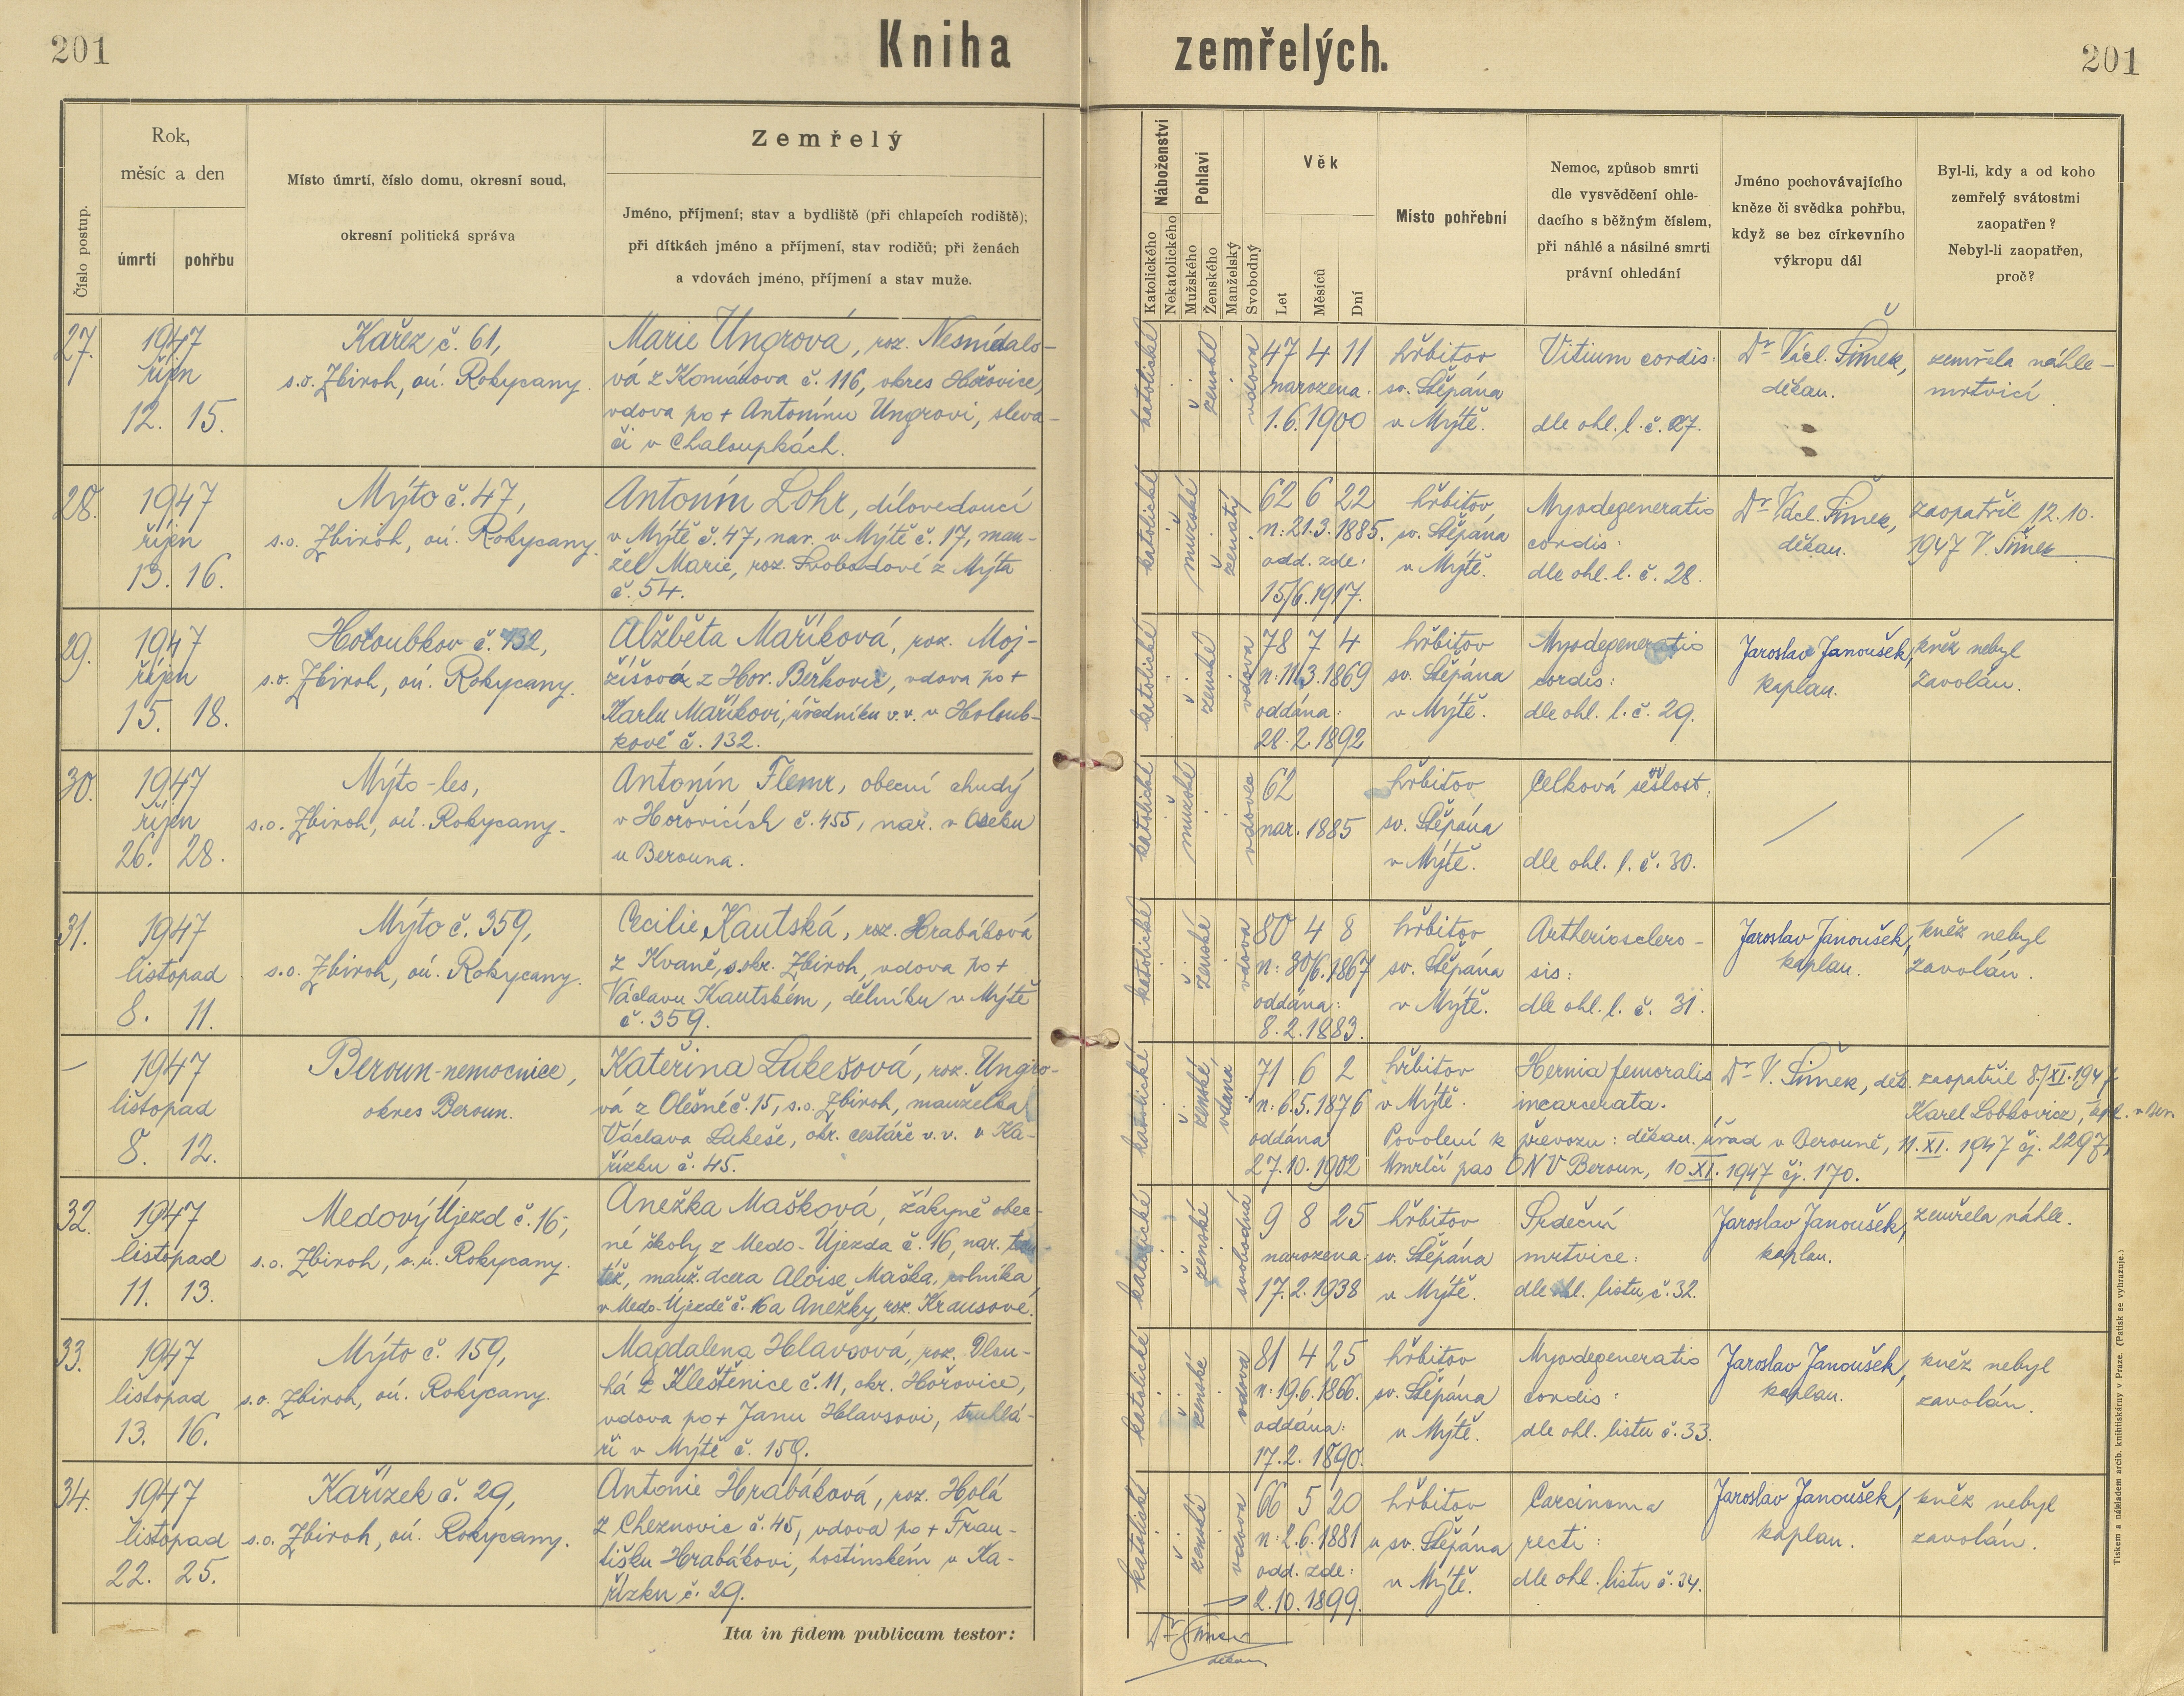 201
Kniha zemřelých.
201
Číslo postup.
Rok,
měsíc a den
úmrtí
pohřbu
Místo úmrtí, číslo domu, okresní soud,
okresní politická správa
Zemřelý
Jméno, příjmení; stav a bydliště (při chlapcích rodiště);
při dítkách jméno a příjmení, stav rodičů; při ženách
a vdovách jméno, příjmení a stav muže.
Náboženství
Katolického
Nekatolického
Pohlaví
Mužského
Ženského
Manželský
Svobodný
Věk
Let
Měsíců
Dní
Místo pohřební
Nemoc, způsob smrti
dle vysvědčení ohle-
dacího s běžným číslem,
při náhlé a násilné smrti
právní ohledání
Jméno pochovávajícího
kněze či svědka pohřbu,
když se bez církevního
výkropu dál
Byl-li, kdy a od koho
zemřelý svátostmi
zaopatřen?
Nebyl-li zaopatřen,
proč?
27.
1947
říjen
12. 15.
Kařez č. 61,
s.o. Zbiroh, oú. Rokycany.
Marie Ungrová, roz. Nesnídalo-
vá z Komárova č. 116, okres Hořovice,
vdova po + Antonínu Ungrovi, sleva-
či v Chaloupkách.
katolické
ženské
vdova
47 4 11
narozena:
1.6.1900
hřbitov
sv. Štěpána
v Mýtě.
Vitium cordis:
dle ohl. l. č. 27.
Dr Václ. Šimek,
děkan.
zemřela náhle-
mrtvicí.
28.
1947
říjen
13. 16.
Mýto č. 47,
s.o. Zbiroh, oú. Rokycany.
Antonín Lohr, dílovedoucí
v Mýtě č. 47, nar. v Mýtě č. 17, man-
žel Marie, roz. Svobodové z Mýta
č. 54.
katolické
mužské
ženatý
62 6 22
n: 21.3.1885.
odd. zde:
15/6.1917.
hřbitov
sv. Štěpána
v Mýtě.
Myodegeneratio
cordis:
dle ohl. l. č. 28.
Dr Václ. Šimek,
děkan.
zaopatřil 12.10.
1947 V. Šimek
29.
1947
říjen
15. 18.
Holoubkov č. 132,
s.o. Zbiroh, oú. Rokycany.
Alžběta Maříková, roz. Moj-
žíšová z Hor. Běřkovic, vdova po +
Karlu Maříkovi, úředníku v.v. v Holoub-
kově č. 132.
katolické
ženské
vdova
78 7 4
n: 11.3.1869
oddána:
28.2.1892
hřbitov
sv. Štěpána
v Mýtě.
Myodegeneratio
cordis:
dle ohl. l. č. 29.
Jaroslav Janoušek,
kaplan.
kněz nebyl
zavolán.
30.
1947
říjen
26. 28.
Mýto-les,
s.o. Zbiroh, oú. Rokycany.
Antonín Flemr, obecní chudý
v Hořovicích č. 455, nar. v Oseku
u Berouna.
katolické
mužské
vdovec
62
nar. 1885
hřbitov
sv. Štěpána
v Mýtě.
Celková sešlost:
dle ohl. l. č. 30.
31.
1947
listopad
8. 11.
Mýto č. 359,
s.o. Zbiroh, oú. Rokycany.
Cecilie Kautská, roz. Hrabáková
z Kvaně, s.okr. Zbiroh, vdova po +
Václavu Kautském, dělníku v Mýtě
č. 359.
katolické
ženské
vdova
80 4 8
n: 30/6.1867
oddána:
8.2.1883.
hřbitov
sv. Štěpána
v Mýtě.
Artheriosclero-
sis:
dle ohl. l. č. 31.
Jaroslav Janoušek,
kaplan.
kněz nebyl
zavolán.
–
1947
listopad
8. 12.
Beroun-nemocnice,
okres Beroun.
Kateřina Lukešová, roz. Ungro-
vá z Olešné č. 15, s.o. Zbiroh, manželka
Václava Lukeše, okr. cestáře v.v. v Ka-
řízku č. 45.
katolické
ženské,
vdaná
71 6 2
n: 6.5.1876
oddána
27.10.1902
hřbitov
v Mýtě.
Hernia femoralis
incarcerata.
Dr V. Šimek, děk.
zaopatřil 8./XI.1947
Karel Lobkovicz, kpl. v Ber.
Povolení k převozu: děkan. úřad v Berouně, 11.XI.1947 čj. 2297,
Umrlčí pas ONV Beroun, 10.XI.1947 čj. 170.
32.
1947
listopad
11. 13.
Medový Újezd č. 16,
s.o. Zbiroh, o.ú. Rokycany.
Anežka Mašková, žákyně obec-
né školy z Medo-Újezda č. 16, nar. tam-
též, manž. dcera Aloise Maška, rolníka
v Medo-Újezdě č. 16 a Anežky, roz. Krausové.
katolické
ženské
svobodná
9 8 25
narozena:
17.2.1938
hřbitov
sv. Štěpána
v Mýtě.
Srdeční
mrtvice:
dle ohl. listu č. 32.
Jaroslav Janoušek,
kaplan.
zemřela náhle.
33.
1947
listopad
13. 16.
Mýto č. 159,
s.o. Zbiroh, oú. Rokycany.
Magdalena Hlavsová, roz. Dlou-
há z Kleštěnice č. 11, okr. Hořovice,
vdova po + Janu Hlavsovi, truhlá-
ři v Mýtě č. 159.
katolické
ženské
vdova
81 4 25
n: 19.6.1866.
oddána:
17.2.1890.
hřbitov
sv. Štěpána
v Mýtě.
Myodegeneratio
cordis:
dle ohl. listu č. 33.
Jaroslav Janoušek,
kaplan.
kněz nebyl
zavolán.
34.
1947
listopad
22. 25.
Kařízek č. 29,
s.o. Zbiroh, oú. Rokycany.
Antonie Hrabáková, roz. Holá
z Cheznovic č. 45, vdova po + Fran-
tišku Hrabákovi, hostinském v Ka-
řízku č. 29.
katolické
ženské
vdova
66 5 20
n: 2.6.1881
odd. zde:
2.10.1899.
hřbitov
u sv. Štěpána
v Mýtě.
Carcinoma
recti:
dle ohl. listu č. 34.
Jaroslav Janoušek,
kaplan.
kněz nebyl
zavolán.
Ita in fidem publicam testor:
Dr Šimek
děkan
Tiskem a nákladem arcib. knihtiskárny v Praze. (Patisk se vyhrazuje.)